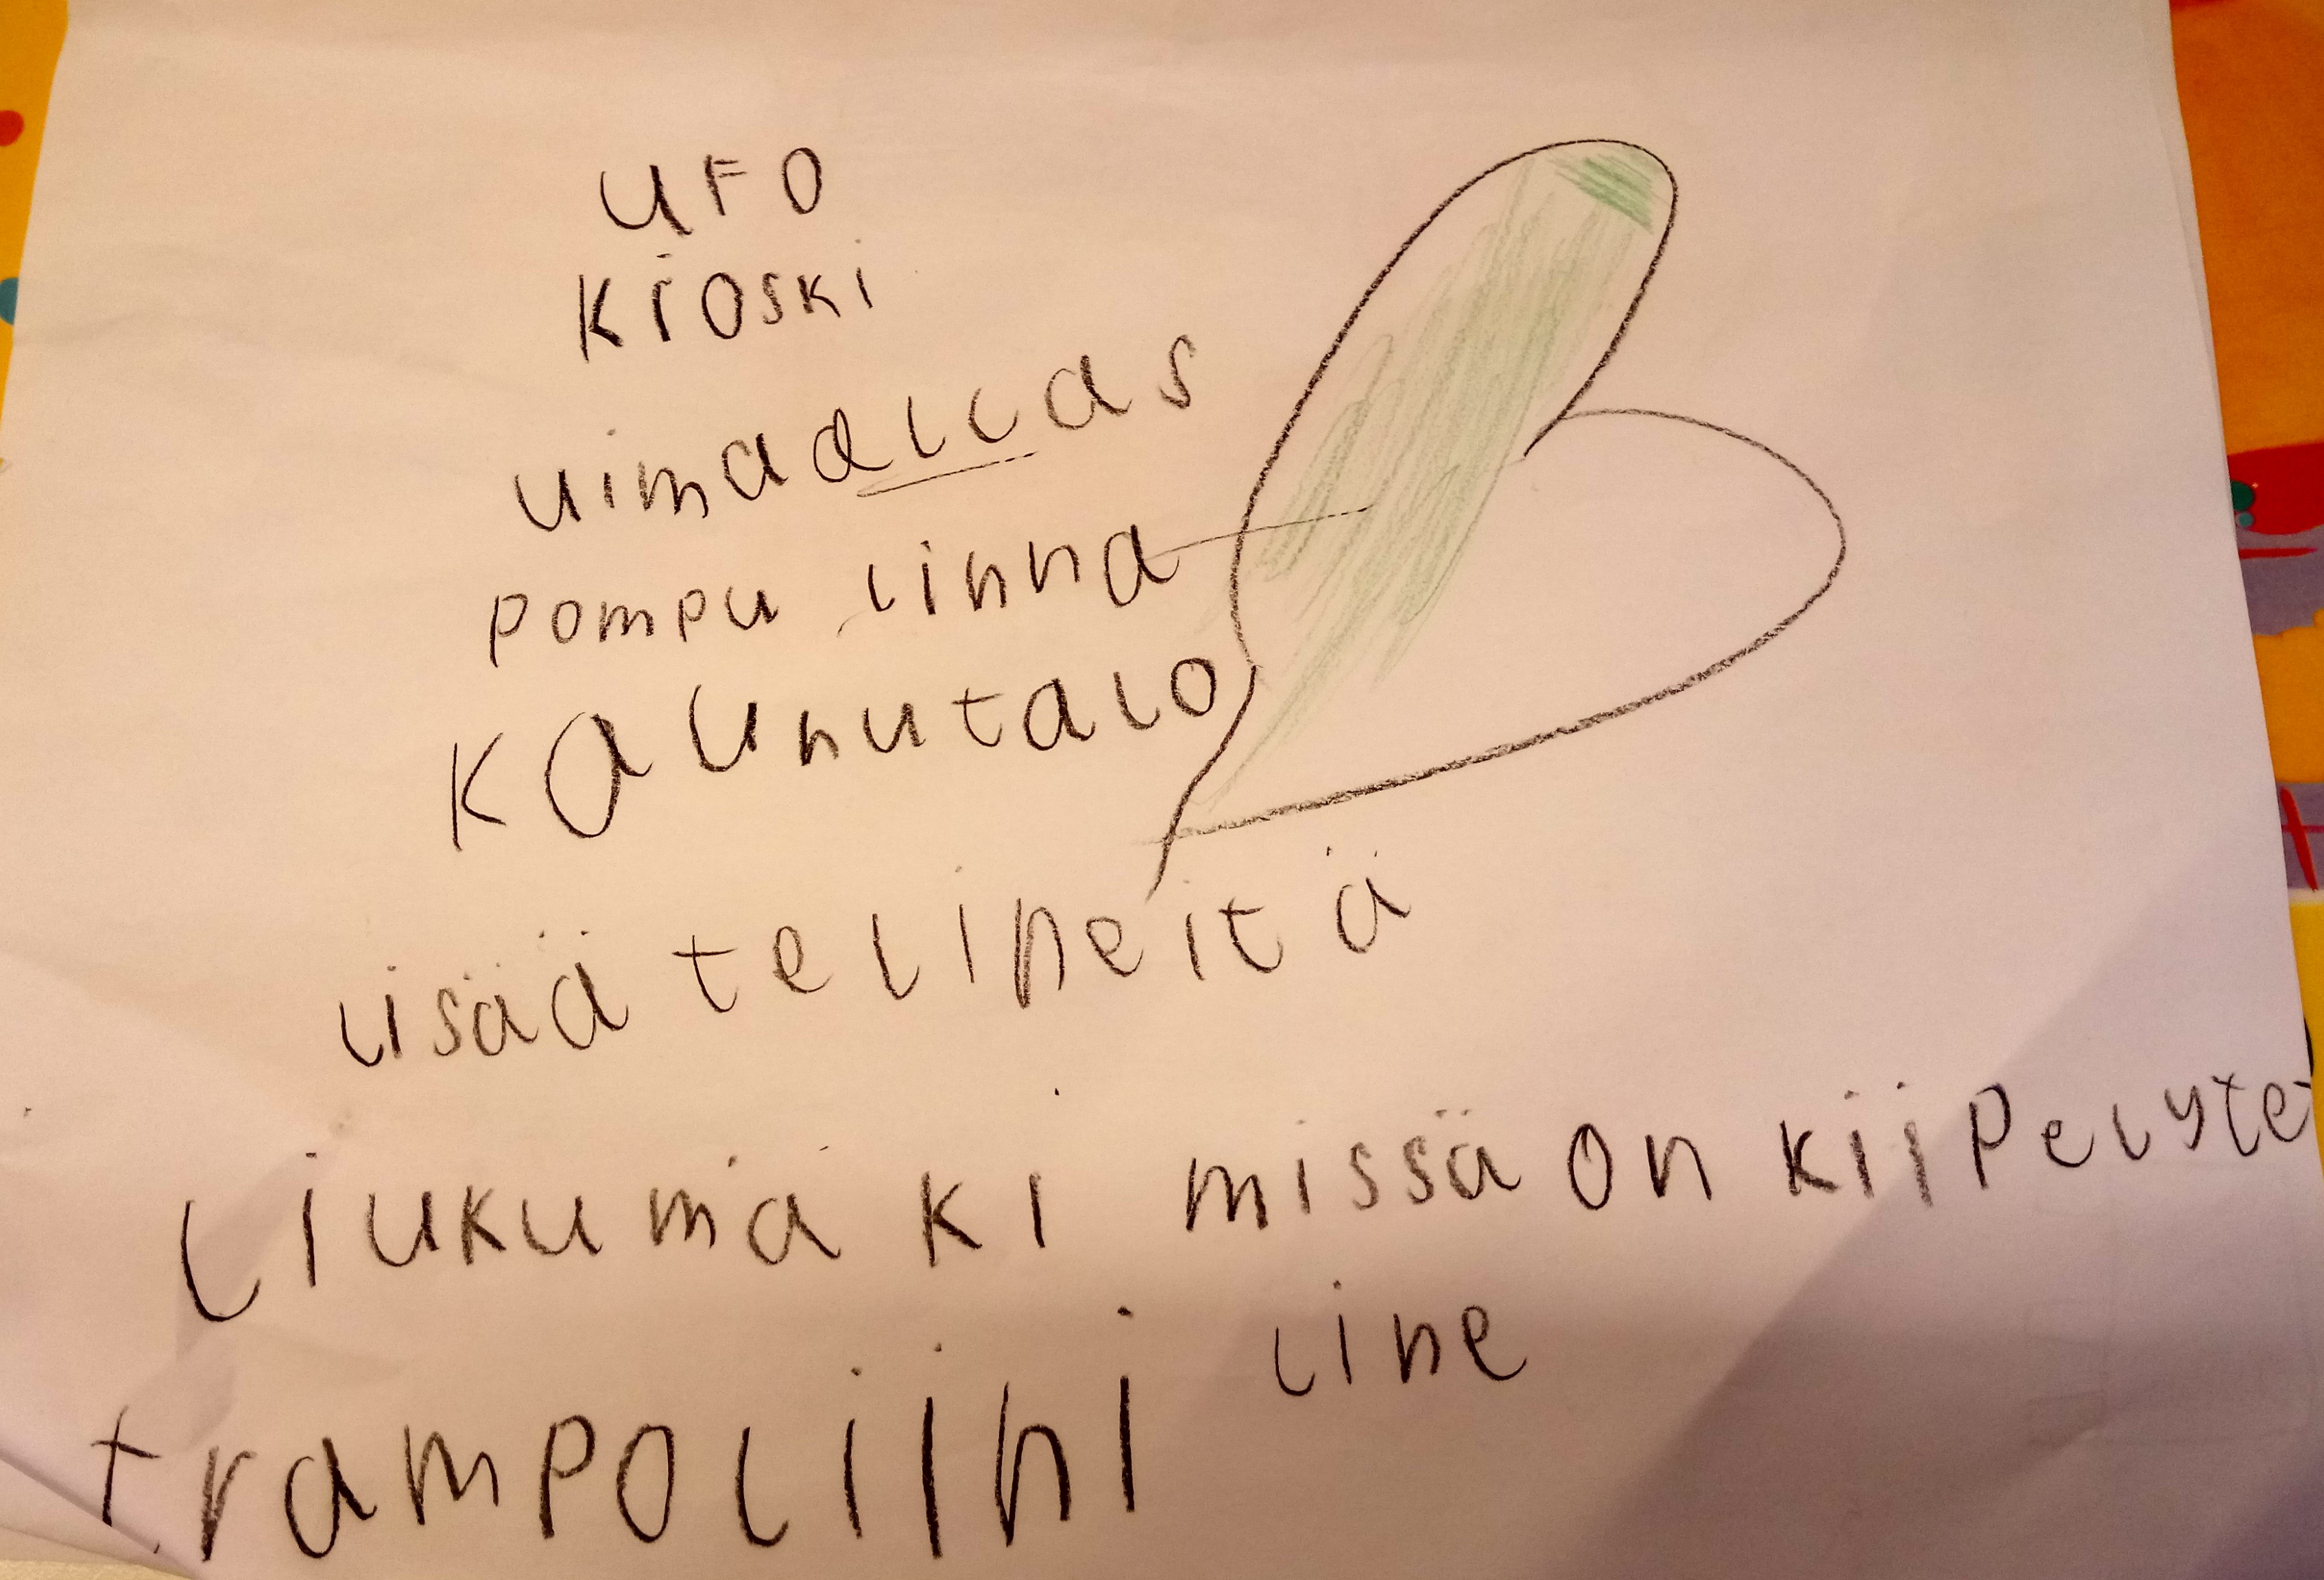 UFO
kioski
uimaallas
pompu linna
kaunutalo
lisää telineitä
liukumäki missä on kiipelyte
line
trampoliini